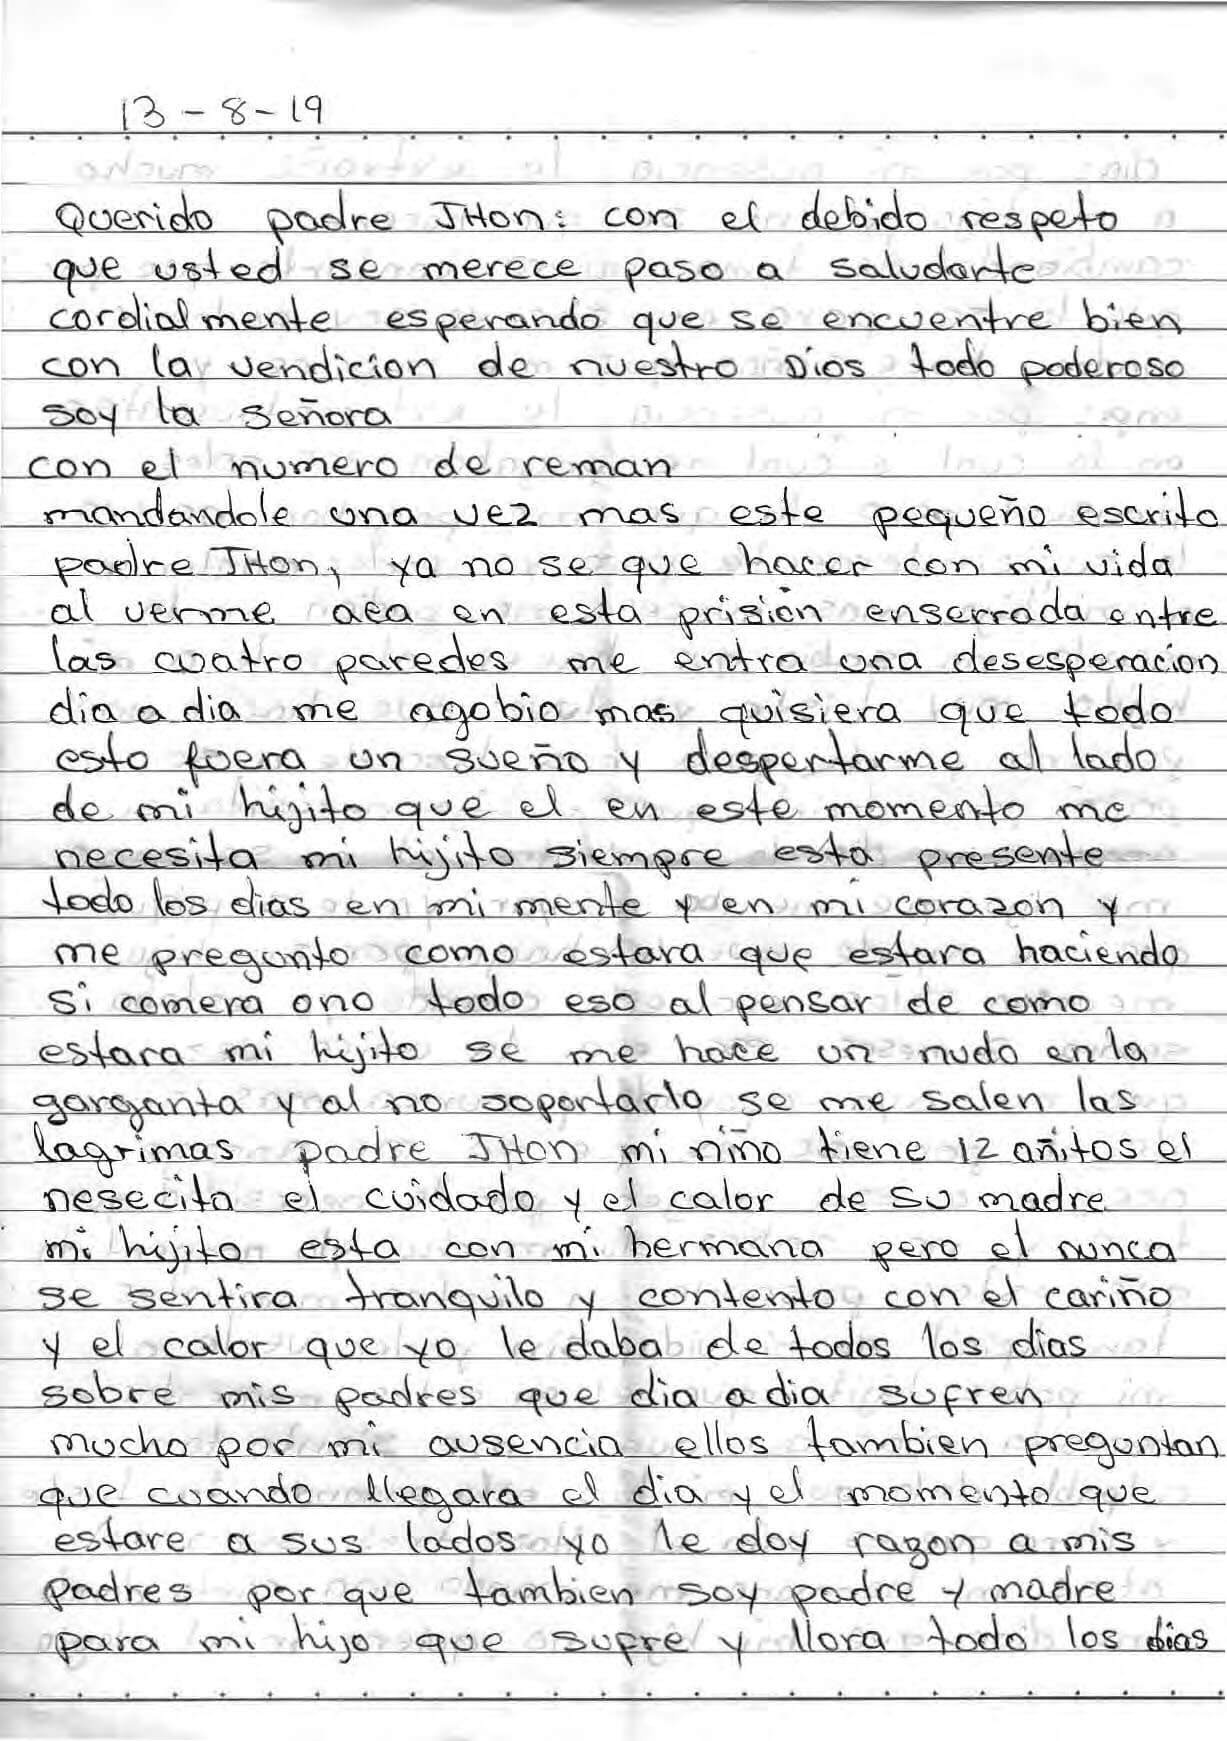 13-8-19
Querido padre JHon: con el debido respeto
que usted se merece paso a saludarte
cordialmente esperando que se encuentre bien
con la vendicion de nuestro Dios todo poderoso
soy la señora
con el numero de reman
mandandole una vez mas este pequeño escrito
padre JHon, ya no se que hacer con mi vida
al verme aca en esta prisión enserrada entre
las cuatro paredes me entra una desesperacion
dia a dia me agobio mas quisiera que todo
esto fuera un sueño y despertarme al lado
de mi hijito que el en este momento me
necesita mi hijito siempre esta presente
todo los dias en mi mente y en mi corazon y
me pregunto como estara que estara haciendo
si comera ono todo eso al pensar de como
estara mi hijito se me hace un nudo en la
garganta y al no soportarlo se me salen las
lagrimas padre JHon mi niño tiene 12 añitos el
nesecita el cuidado y el calor de su madre
mi hijito esta con mi hermana pero el nunca
se sentira tranquilo y contento con el cariño
y el calor que yo le daba de todos los dias
sobre mis padres que dia a dia sufren
mucho por mi ausencia ellos tambien preguntan
que cuando llegara el dia y el momento que
estare a sus lados yo le doy razon a mis
padres por que tambien soy padre y madre
para mi hijo que sufre y llora todo los dias